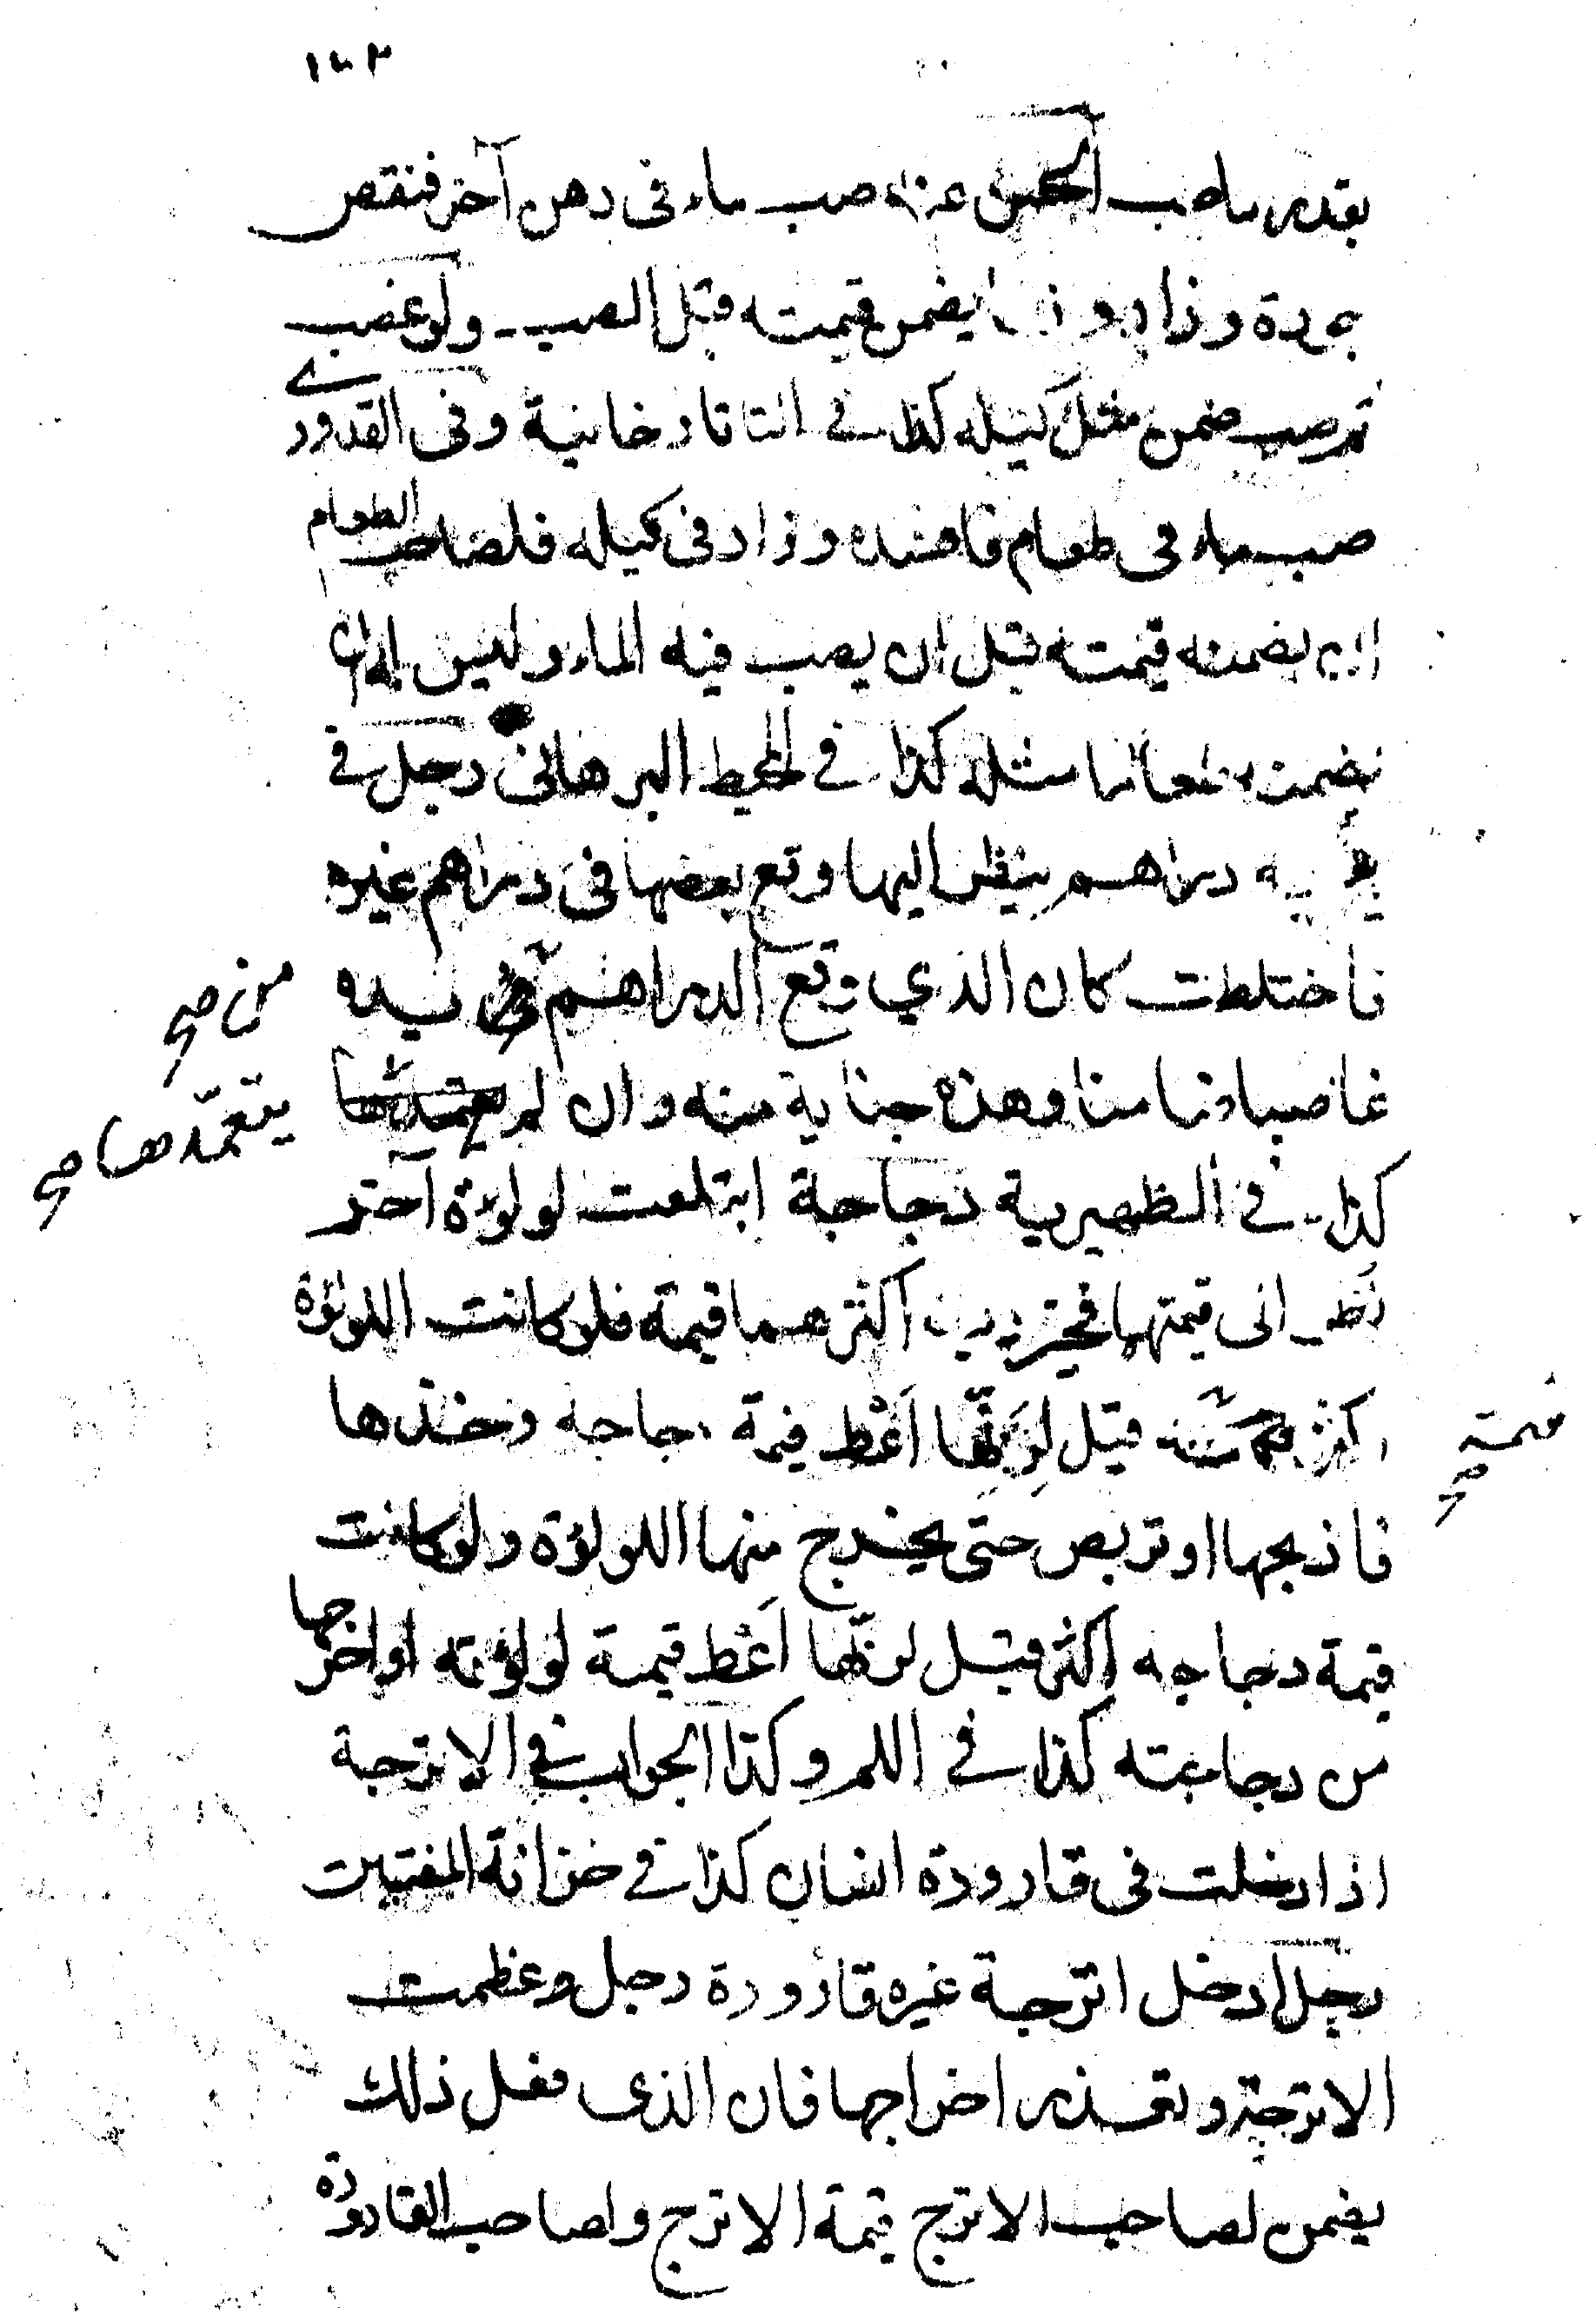 ١٧٣
بقدر ما صب الحبس عن صب ماء في دهن آخر فنقص
جودة وزاد وزنا يضمن قيمته قبل الصب ولو غصب
ثم صب ضمن مثل كيله كذا في التاتارخانية وفي القدوري
صب ماء في طعام فافسده وزاد في كيله فلصاحب الطعام
ان يضمنه قيمته قبل ان يصب فيه الماء وليس له ان
يضمنه طعاما مثله كذا في المحيط البرهاني رجل في
يديه دراهم ينظر اليها وقع بعضها في دراهم غيره
فاختلطت كان الذي وقع الدراهم من يده
غاصبا ضامنا وهذه جناية منه وان لم يتعمدها
من صح
يتعمّدها صح
كذا في الظهيرية دجاجة ابتلعت لولؤة آخر
نظر الى قيمتهما فخير رب اكثرهما قيمة فلو كانت اللولؤة
اكثر قيمة قيل لربّها اَعْط قيمة دجاجه وخذها
قيمة صح
فاذبحها او تربص حتى يخرج منها اللولؤة ولو كانت
قيمة دجاجه اكثر قيل لربّها اَعْط قيمة لولؤته او اخرجها
من دجاجته كذا في اللم وكذا الجواب في الاترجة
اذا دخلت في قارورة انسان كذا في خزانة المفتيين
رجل ادخل اترجة غيره قارورة رجل وعظمت
الاترجة وتعذر اخراجها فان الذي فعل ذلك
يضمن لصاحب الاترج قيمة الاترج ولصاحب القارورة